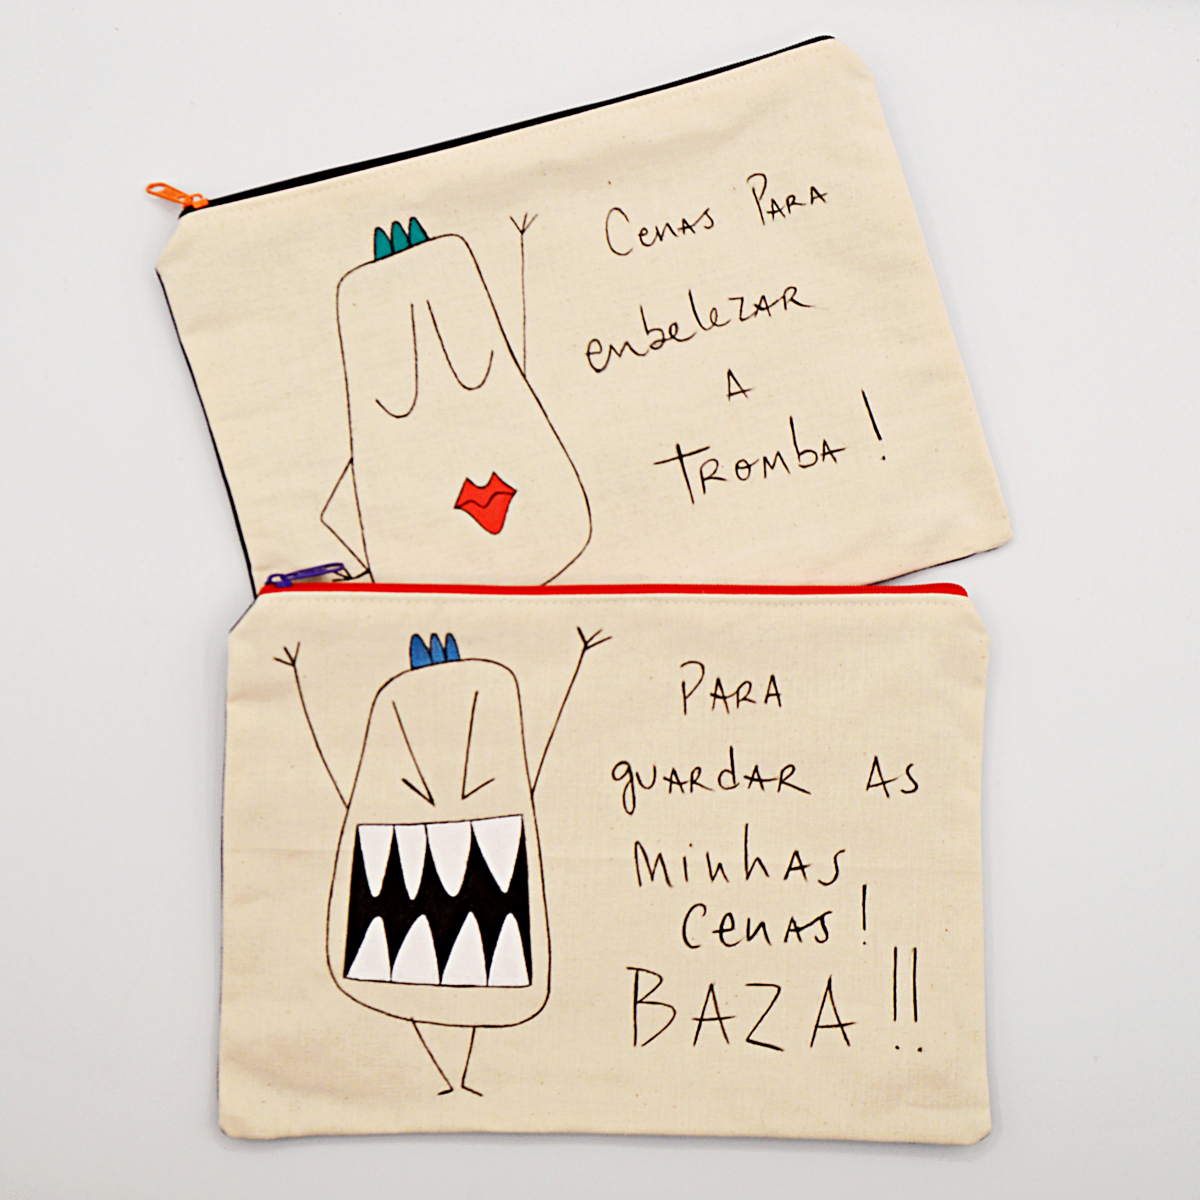 Cenas Para
enbelezar
a
tromba!
Para
guardar as
minhas
cenas!
BAZA!!